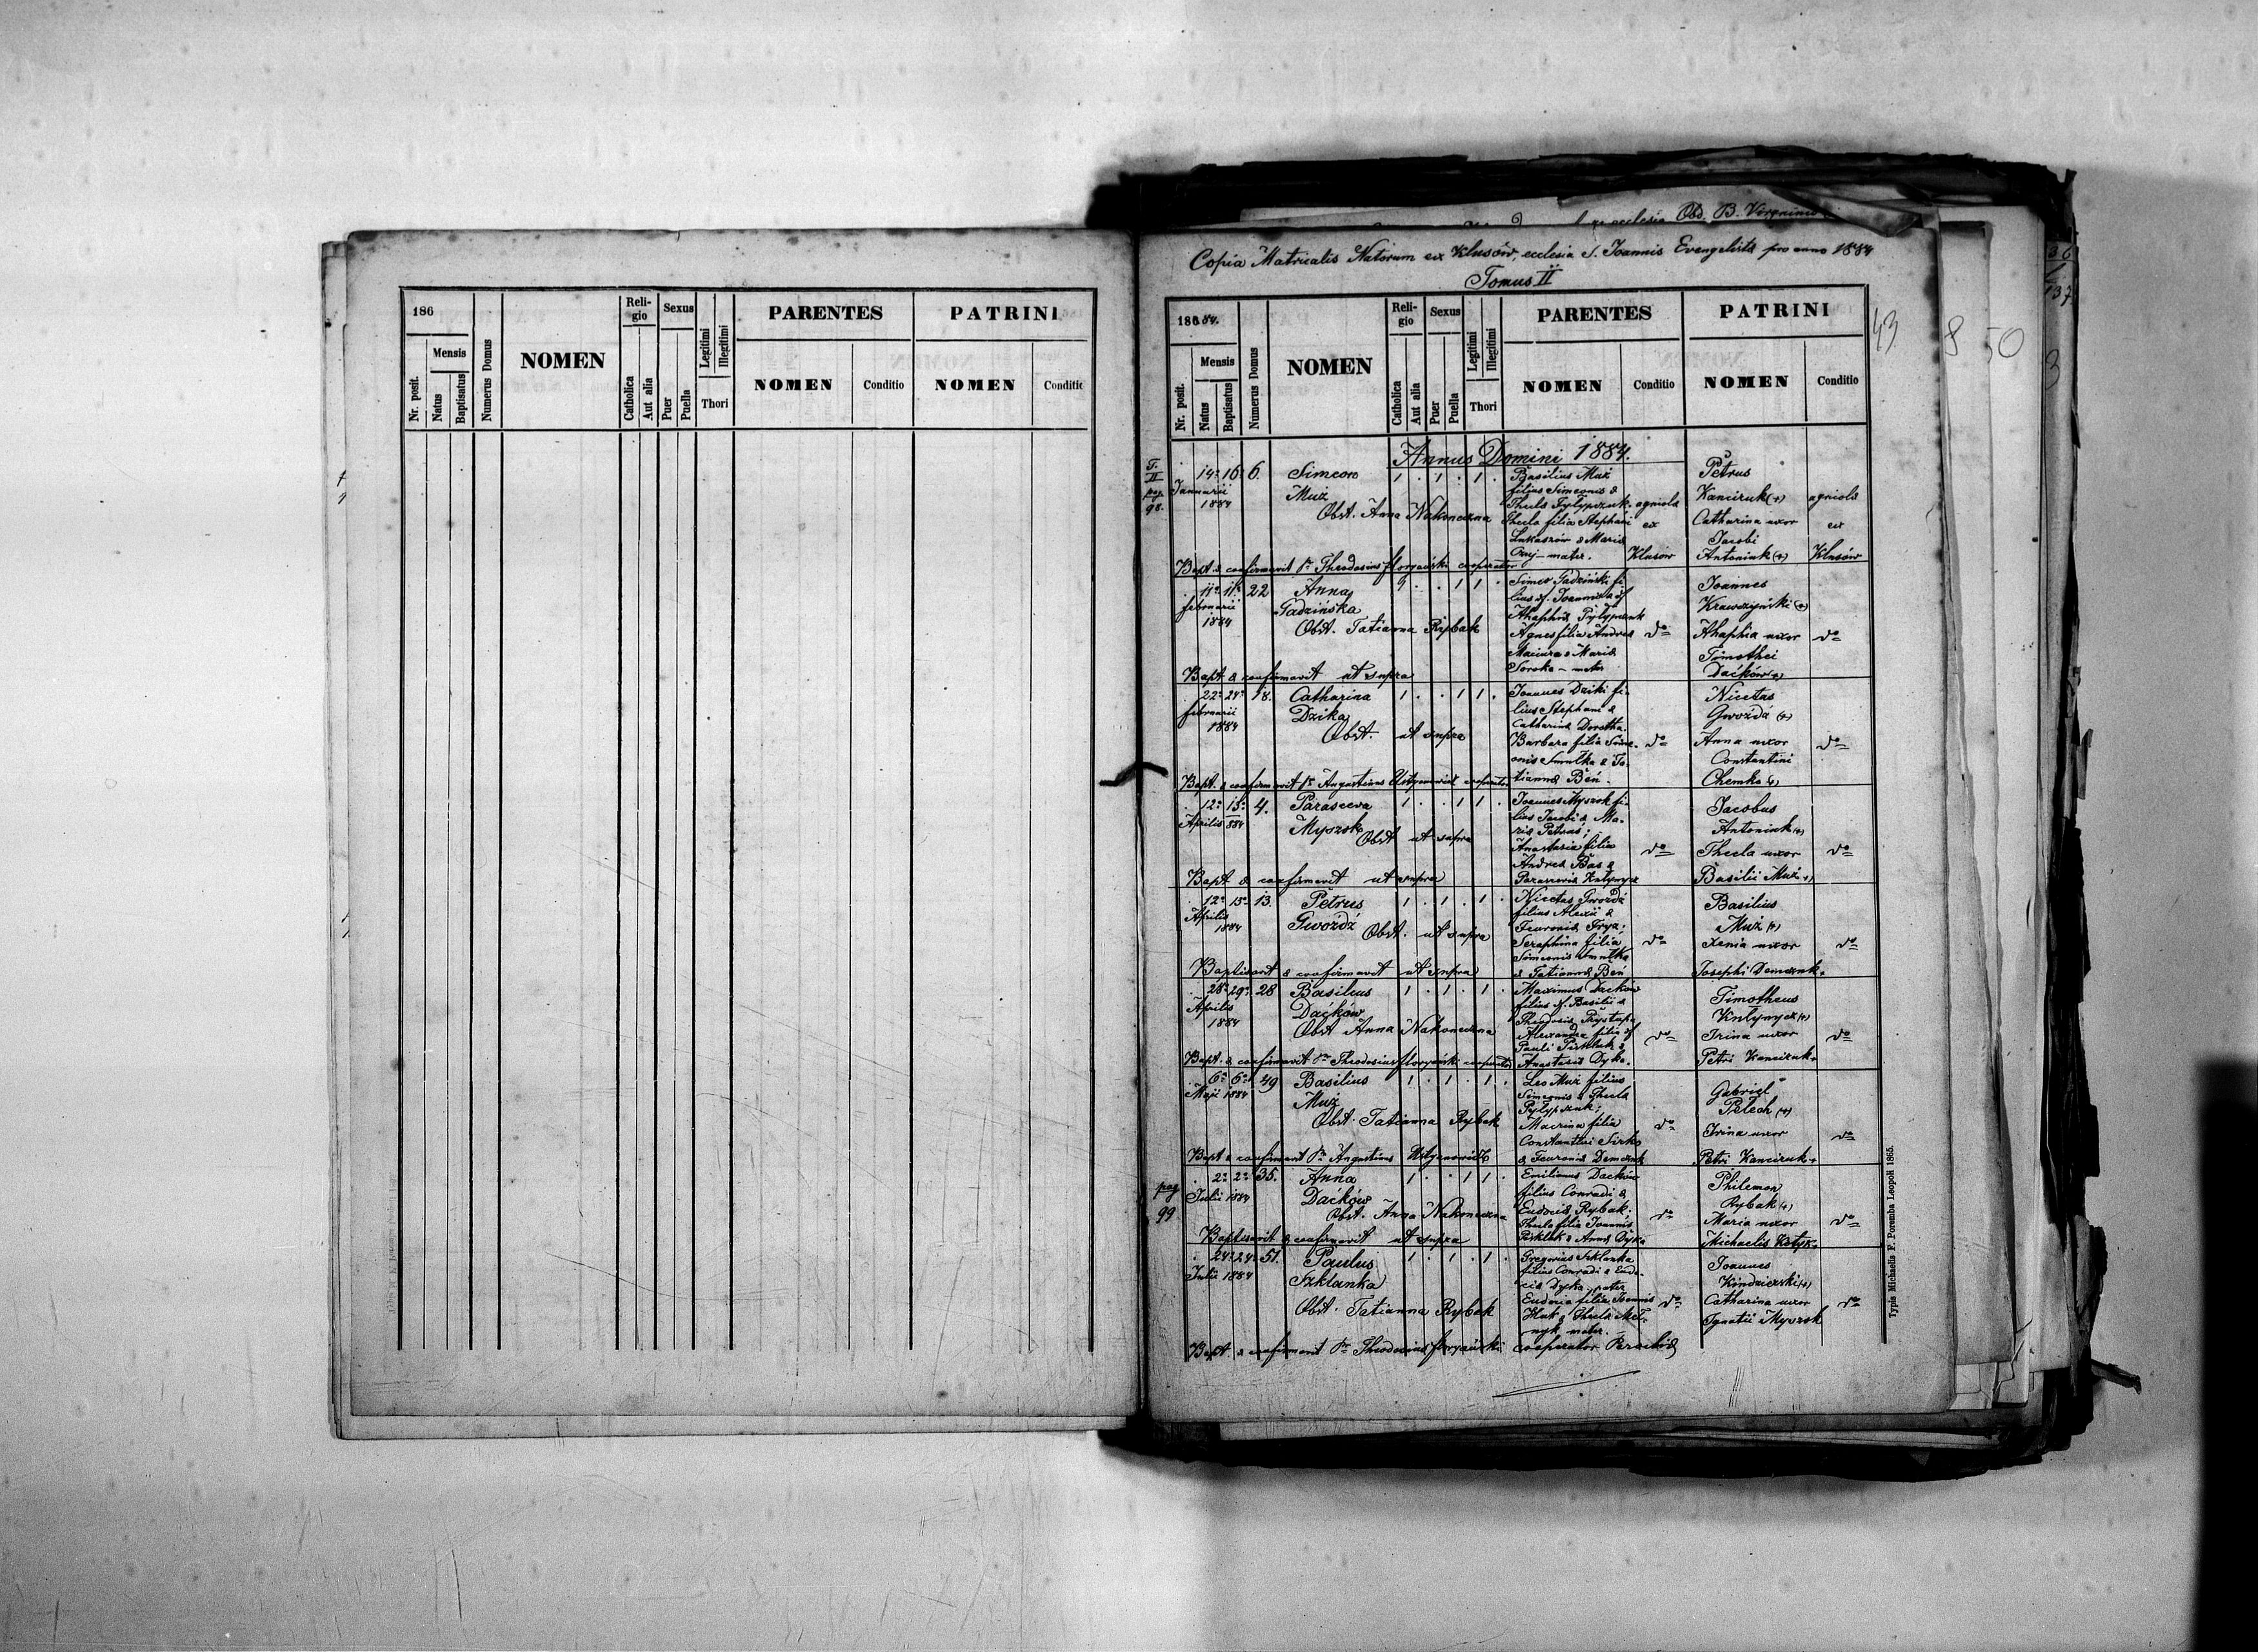 186
Nr. posit.
Mensis
Natus
Baptisatus
Numerus Domus
NOMEN
Reli-
gio
Catholica
Aut alia
Sexus
Puer
Puella
Legitimi
Illegitimi
Thori
PARENTES
NOMEN
Conditio
PATRINI
NOMEN
Conditio
ecclesia Obd. B. Virginis
Copia Matricalis Natorum ex Klusów, ecclesia S. Joannis Evangelista pro anno 1884
Tomus II
43
8
50
18684.
Nr. posit.
Mensis
Natus
Baptisatus
Numerus Domus
NOMEN
Reli-
gio
Catholica
Aut alia
Sexus
Puer
Puella
Legitimi
Illegitimi
Thori
PARENTES
NOMEN
Conditio
PATRINI
NOMEN
Conditio
Annus Domini 1884.
T.
II
pag.
98.
14a 16a 6.
Januarii
1884
Simeon
Muż
Obst. Anna Nakoneczna
1 . 1 . 1 .
Basilius Muż
filius Simeonis &
Thecla Pylypczuk
Thecla filia Stephani
Lukaszów & Maria
mater.
agricola
ex
Klusów
Petrus
Kanciruk (+)
Catharina uxor
Jacobi
Antoniuk (+)
agricola
ex
Klusów
Bapt. & confirmavit Pr Theodosius Floryański cooperator
11a 11a 22
februarii
1884
Anna
Gadzińska
Obst. Tatianna Rybak
Simeo Gadziński fi-
lius Joannis &
Ahaphia Pylypczuk
Agnes filia Andrea
Maciura & Maria
Soroka - mater
do
Joannes
Krawczyński (+)
Ahaphia uxor
Timothei
Daćków (+)
do
Bapt & confirmavit ut supra
22a 24a 18.
februarii
1884
Catharina
Dzika
Obst. ut supra
1 . . 1 1 .
Joannes Dziki fi-
lius Stephani &
Catharina Dorotha.
Barbara filia Sime-
onis Smulka & Ta-
tianna Beń.
do
Nicetas
Gwoźdź (+)
Anna uxor
Constantini
Chemka (+)
do
Bapt. & confirmavit Pr Augustinus Ustyanowicz cooperator
12a 13a 4.
Aprilis 884
Parasceva
Myszok
Obst ut supra
1 . . 1 1 .
Joannes Myszok fi-
lius Jacobi & Ma-
ria Petrus;
Anastasia filia
Andrea Bas &
Parascevia Kutynycz
do
Jacobus
Antoniuk (+)
Thecla uxor
Basilii Muż (+)
do
Bapt & confirmavit ut supra
12a 15a 13.
Aprilis
1884
Petrus
Gwoźdź
Obst. ut supra
1 . 1 . 1 .
Nicetas Gwoźdź
filius Alexii &
Feuronia Fryz;
Seraphina filia
Simeonis Smulka
& Tatianna Beń
do
Basilius
Muż (+)
Xenia uxor
Josephi Demczuk +
do
Baptisavit & confirmavit ut supra
28a 29a 28
Aprilis
1884
Basilius
Daćków
Obst Anna Nakoneczna
1 . 1 . 1 .
Maximus Daćków
filius Basilii &
Theodosia Prystupa
Alexandra filia
Pauli Pisklak &
Anastasia Dyka.
do
Timotheus
Kutynycz (+)
Irina uxor
Petri Kanciruk +
do
Bapt. & confirmavit Pr Theodosius Floryański cooperator
6a 6a 49
Maji 1884
Basilius
Muż
Obst. Tatianna Rybak
1 . 1 . 1 .
Leo Muż filius
Simeonis & Thecla
Pylypczuk;
Macrina filia
Constantini Sirko
& Feuronia Demczuk
do
Gabriel
Pelech (+)
Irina uxor
Petri Kanciruk +
do
Bapt & confirmavit Pr Augustinus Ustyanowicz
pag
99
2a 2a 35.
Julii 1884
Anna
Daćków
Obst. Anna Nakoneczna
1 . . 1 1 .
Emilianus Daćków
filius Conradi &
Eudocia Rybak;
Thecla filia Joannis
Pisklak & Anna Dyka
do
Philemon
Rybak (+)
Maria uxor
Michaelis Kotyk +
do
Baptisavit & confirmavit ut supra
24a 24a 51.
Julii 1884
Paulus
Szklanka
Obst. Tatianna Rybak
1 . 1 . 1 .
Gregorius Szklanka
filius Conradi & Eudo-
cia Dyka, pater
Eudocia filia Joannis
Huk & Thecla Mel-
nyk, mater.
do
Joannes
Kindzierski (+)
Catharina uxor
Ignatii Myszok
do
Bapt. & confirmavit Pr Theodosius Floryański cooperator Parochiae
Typis Michaelis F. Poremba Leopoli 1865.